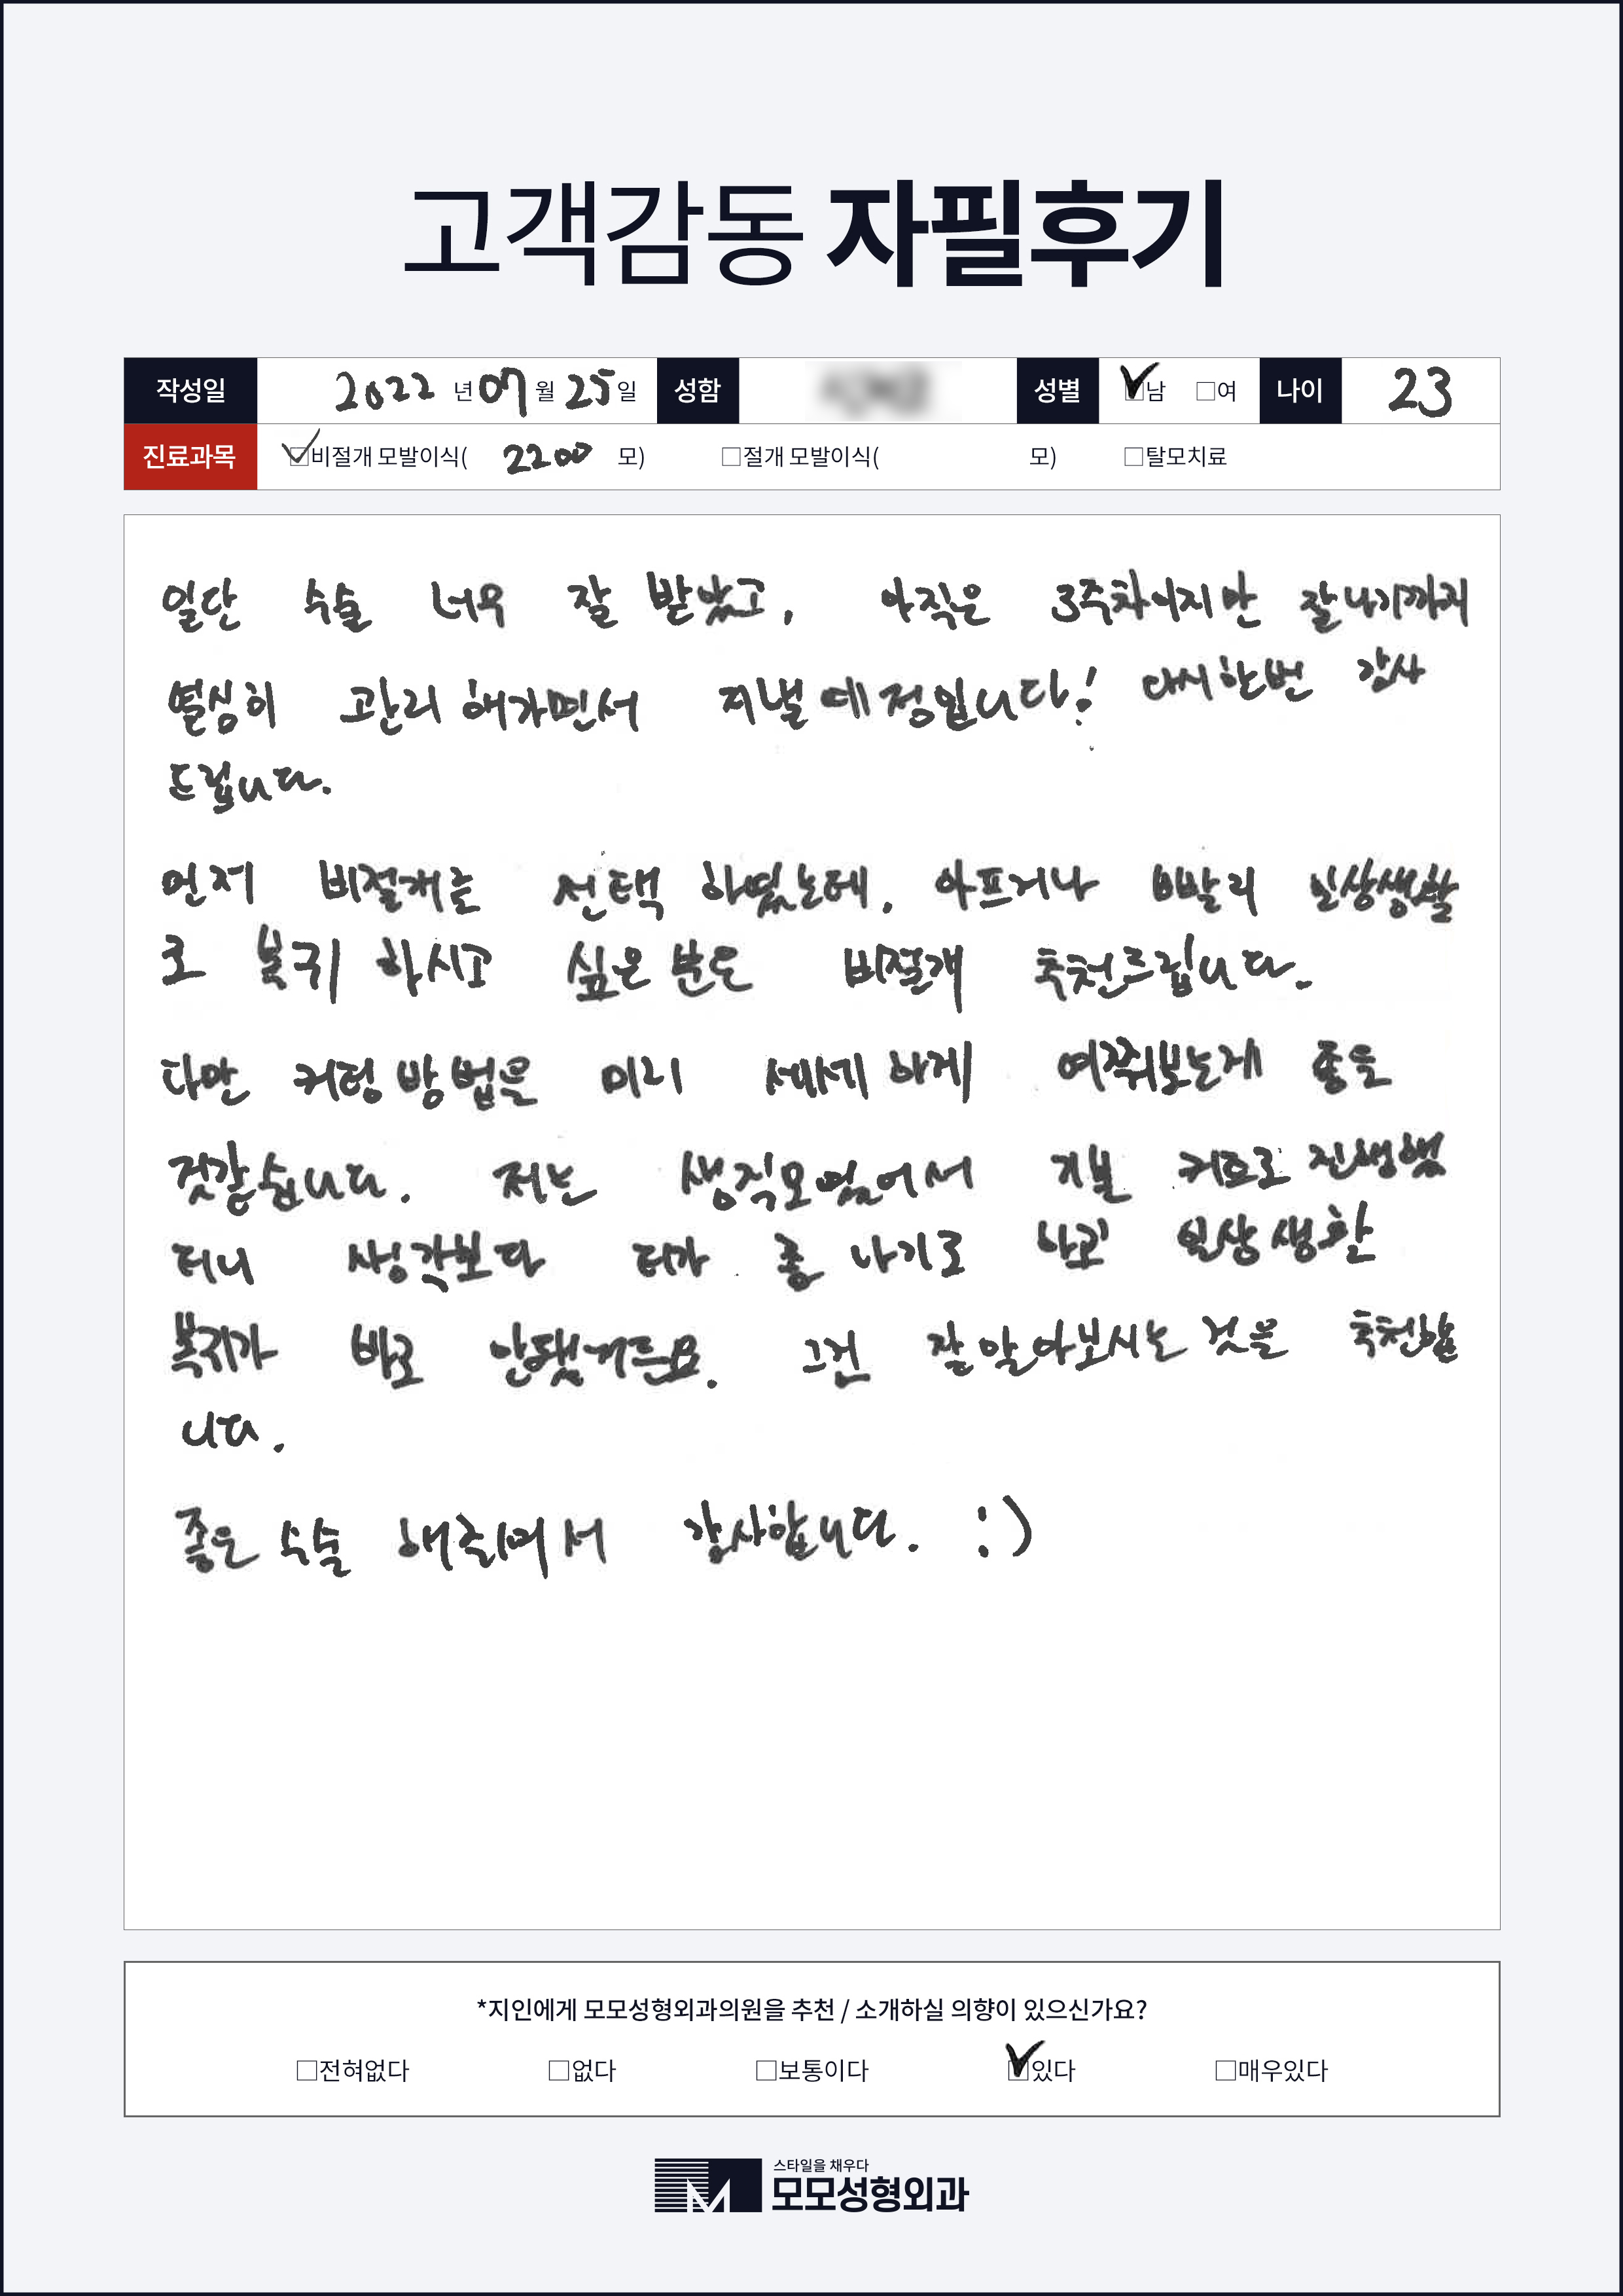 고객감동 자필후기
작성일 2022 년 07 월 25 일 성함 성별 ☑남 □여 나이 23
진료과목 ☑비절개 모발이식( 2200 모) □절개 모발이식( 모) □탈모치료
일단 수술 너무 잘 받았고, 아직은 3주차이지만 잘나기까지
열심히 관리해가면서 지낼 예정입니다! 다시한번 감사
드립니다.
먼저 비절개를 선택 하였는데, 아프거나 빨리 일상생활
로 복귀 하시고 싶은분은 비절개 추천드립니다.
다만 커팅방법을 미리 세세하게 여쭤보는게 좋을
것같습니다. 저는 생직모였어서 지붕 커트로 진행했
더니 생각보다 티가 좀 나기로 하고 일상생활
복귀가 바로 안됐거든요. 그건 잘알아보시는것을 추천합
니다.
좋은 수술 해주셔서 감사합니다. :)
*지인에게 모모성형외과의원을 추천 / 소개하실 의향이 있으신가요?
□전혀없다 □없다 □보통이다 ☑있다 □매우있다
스타일을 채우다
모모성형외과